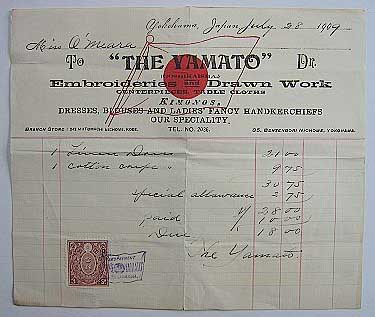 Yokohama, Japan July 28 1909
Miss O'Meara
To "THE YAMATO" Dr.
Embroideries and Drawn Work
CENTERPIECES, TABLE CLOTHS
KIMONOS,
DRESSES, BLOUSES AND LADIES' FANCY HANDKERCHIEFS
OUR SPECIALITY.
TEL. NO. 2036.
BENTENDORI NICHOME, YOKOHAMA.
1 Linen 21 00
1 cotton crepe " 9 75
30 75
special allowance 2 75
28 00
paid 10 00
Due 18 00
The Yamato